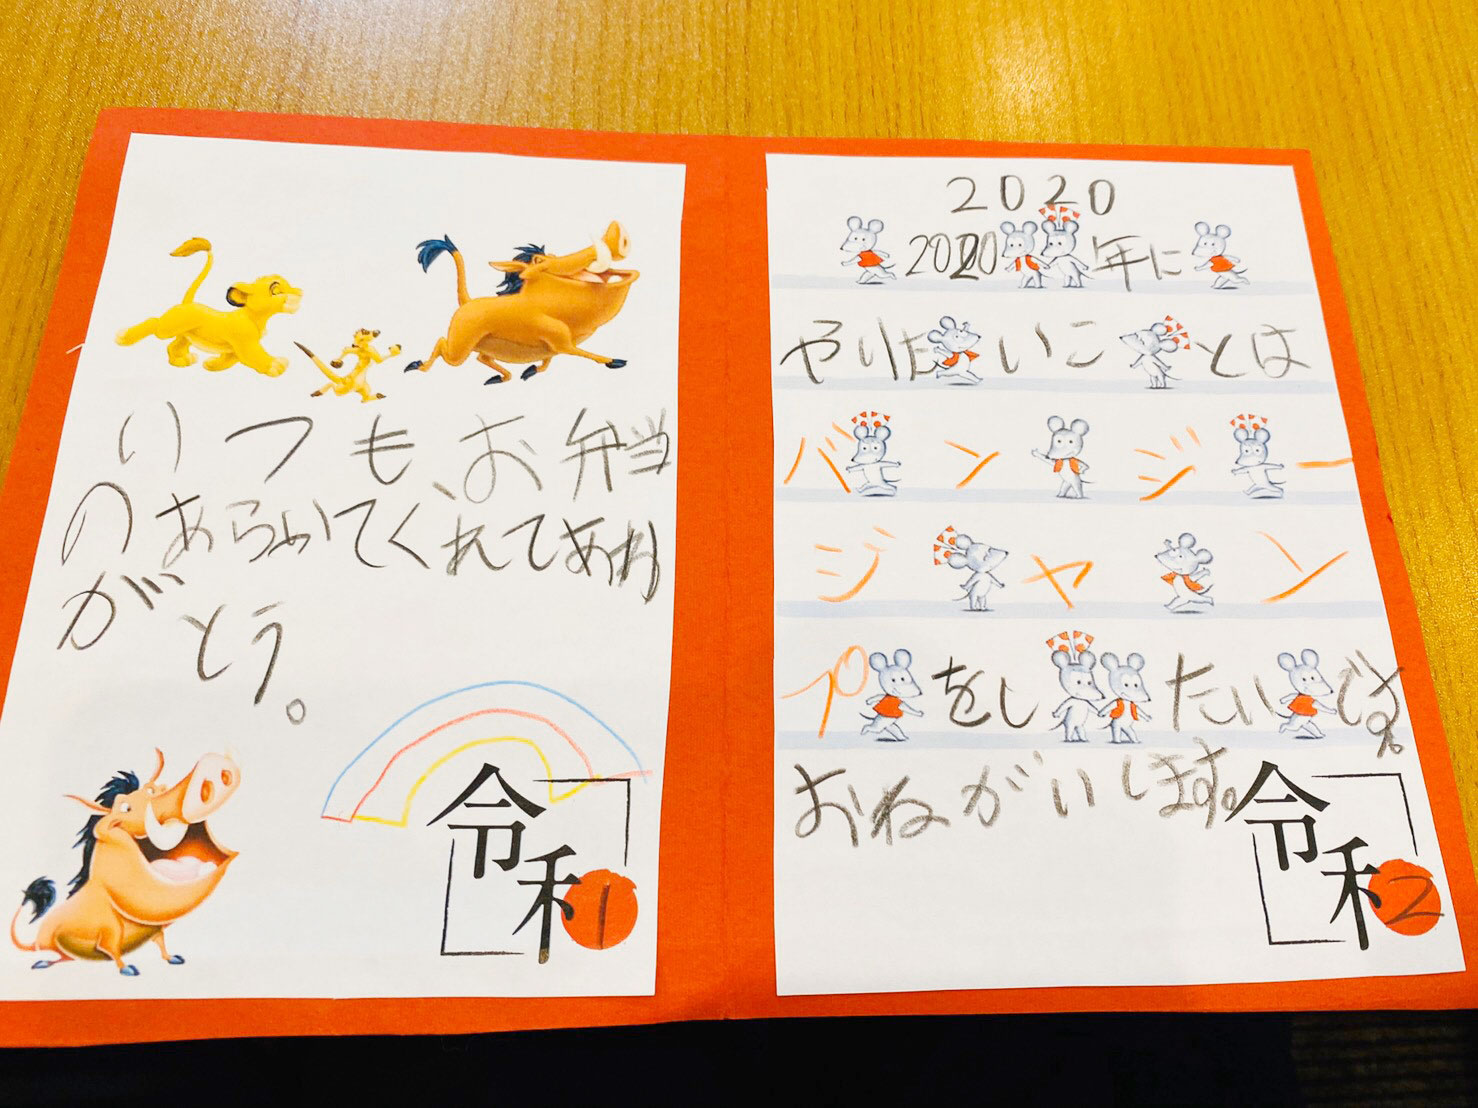 いつも、お弁当
のあらいてくれてあり
がとう。
令和1
2020
2020年に
やりたいことは
バンジー
ジャン
プをしたいです。
おねがいします。
令和2